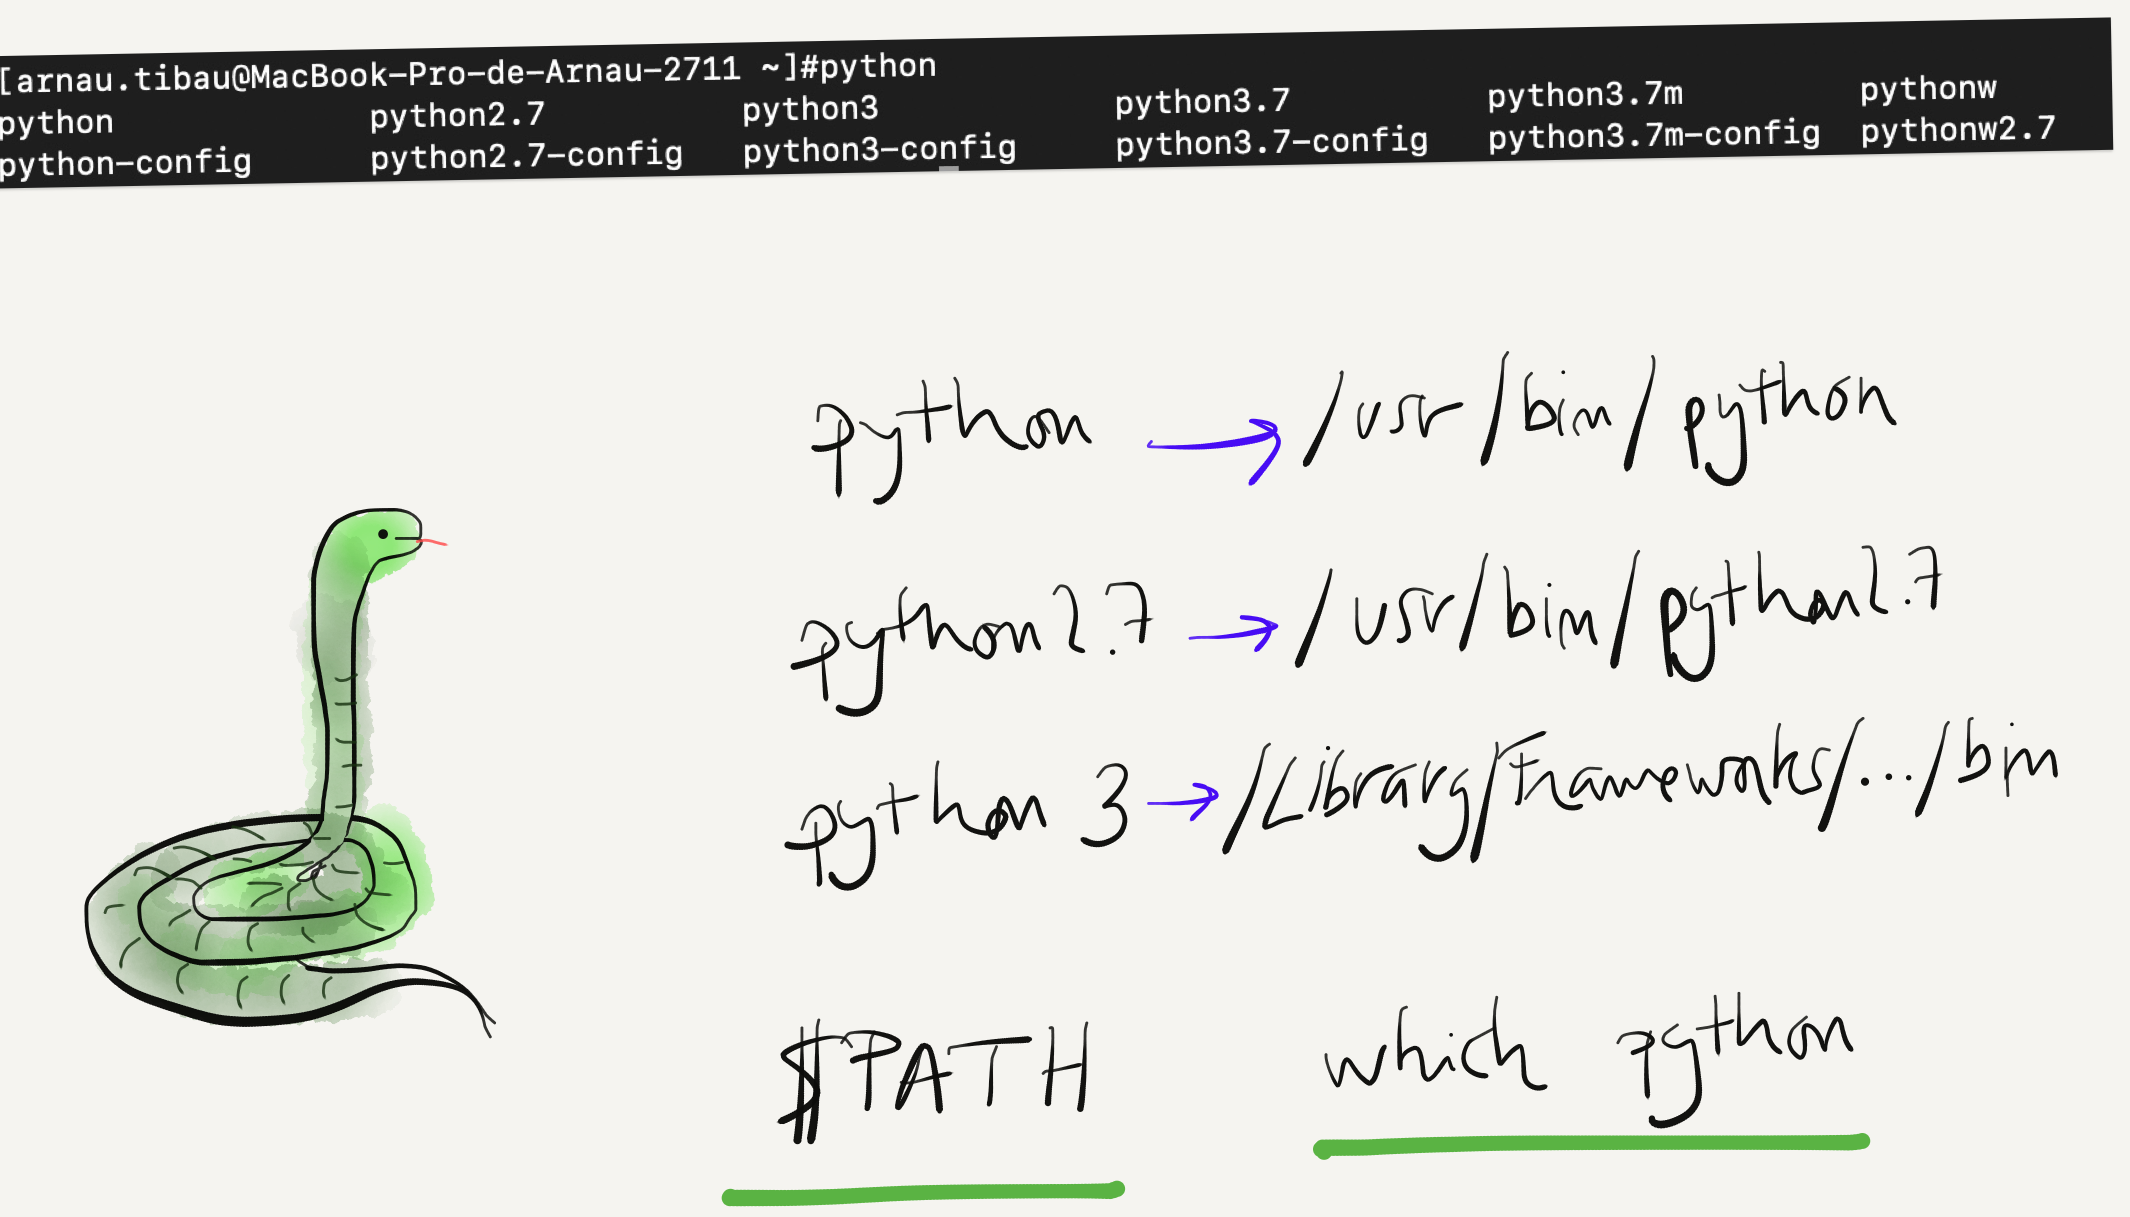 [arnau.tibau@MacBook-Pro-de-Arnau-2711 ~]#python
python python2.7 python3 python3.7 python3.7m pythonw
python-config python2.7-config python3-config python3.7-config python3.7m-config pythonw2.7
python → /usr/bin/python
python2.7 → /usr/bin/python2.7
python 3 → /Library/Frameworks/.../bin
$PATH which python